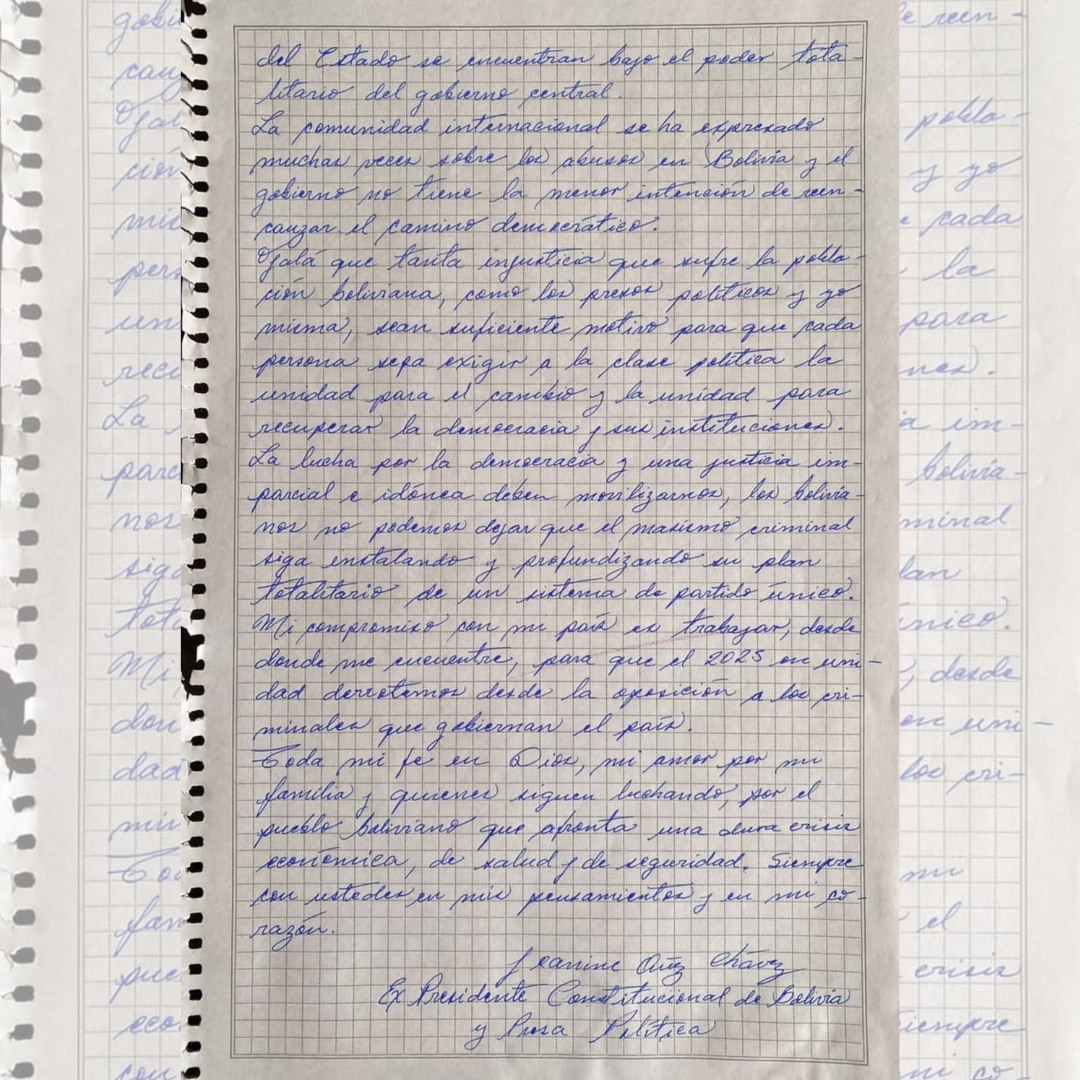 del Estado se encuentran bajo el poder tota-
litario del gobierno central.
La comunidad internacional se ha expresado
muchas veces sobre los abusos en Bolivia y el
gobierno no tiene la menor intención de reen-
cauzar el camino democrático.
Ojalá que tanta injusticia que sufre la pobla-
ción boliviana, como los presos políticos y yo
misma, sean suficiente motivo para que cada
persona sepa exigir a la clase política la
unidad para el cambio y la unidad para
recuperar la democracia y sus instituciones.
La lucha por la democracia y una justicia im-
parcial e idónea deben movilizarnos, los bolivia-
nos no podemos dejar que el masismo criminal
siga instalando y profundizando su plan
totalitario de un sistema de partido único.
Mi compromiso con mi país es trabajar, desde
donde me encuentre, para que el 2025 en uni-
dad derrotemos desde la oposición a los cri-
minales que gobiernan el país.
Toda mi fe en Dios, mi amor por mi
familia y quienes siguen luchando, por el
pueblo boliviano que afronta una dura crisis
económica, de salud y de seguridad. Siempre
con ustedes en mis pensamientos y en mi co-
razón.
Jeanine Añez Chávez
Ex Presidente Constitucional de Bolivia
y Presa Política